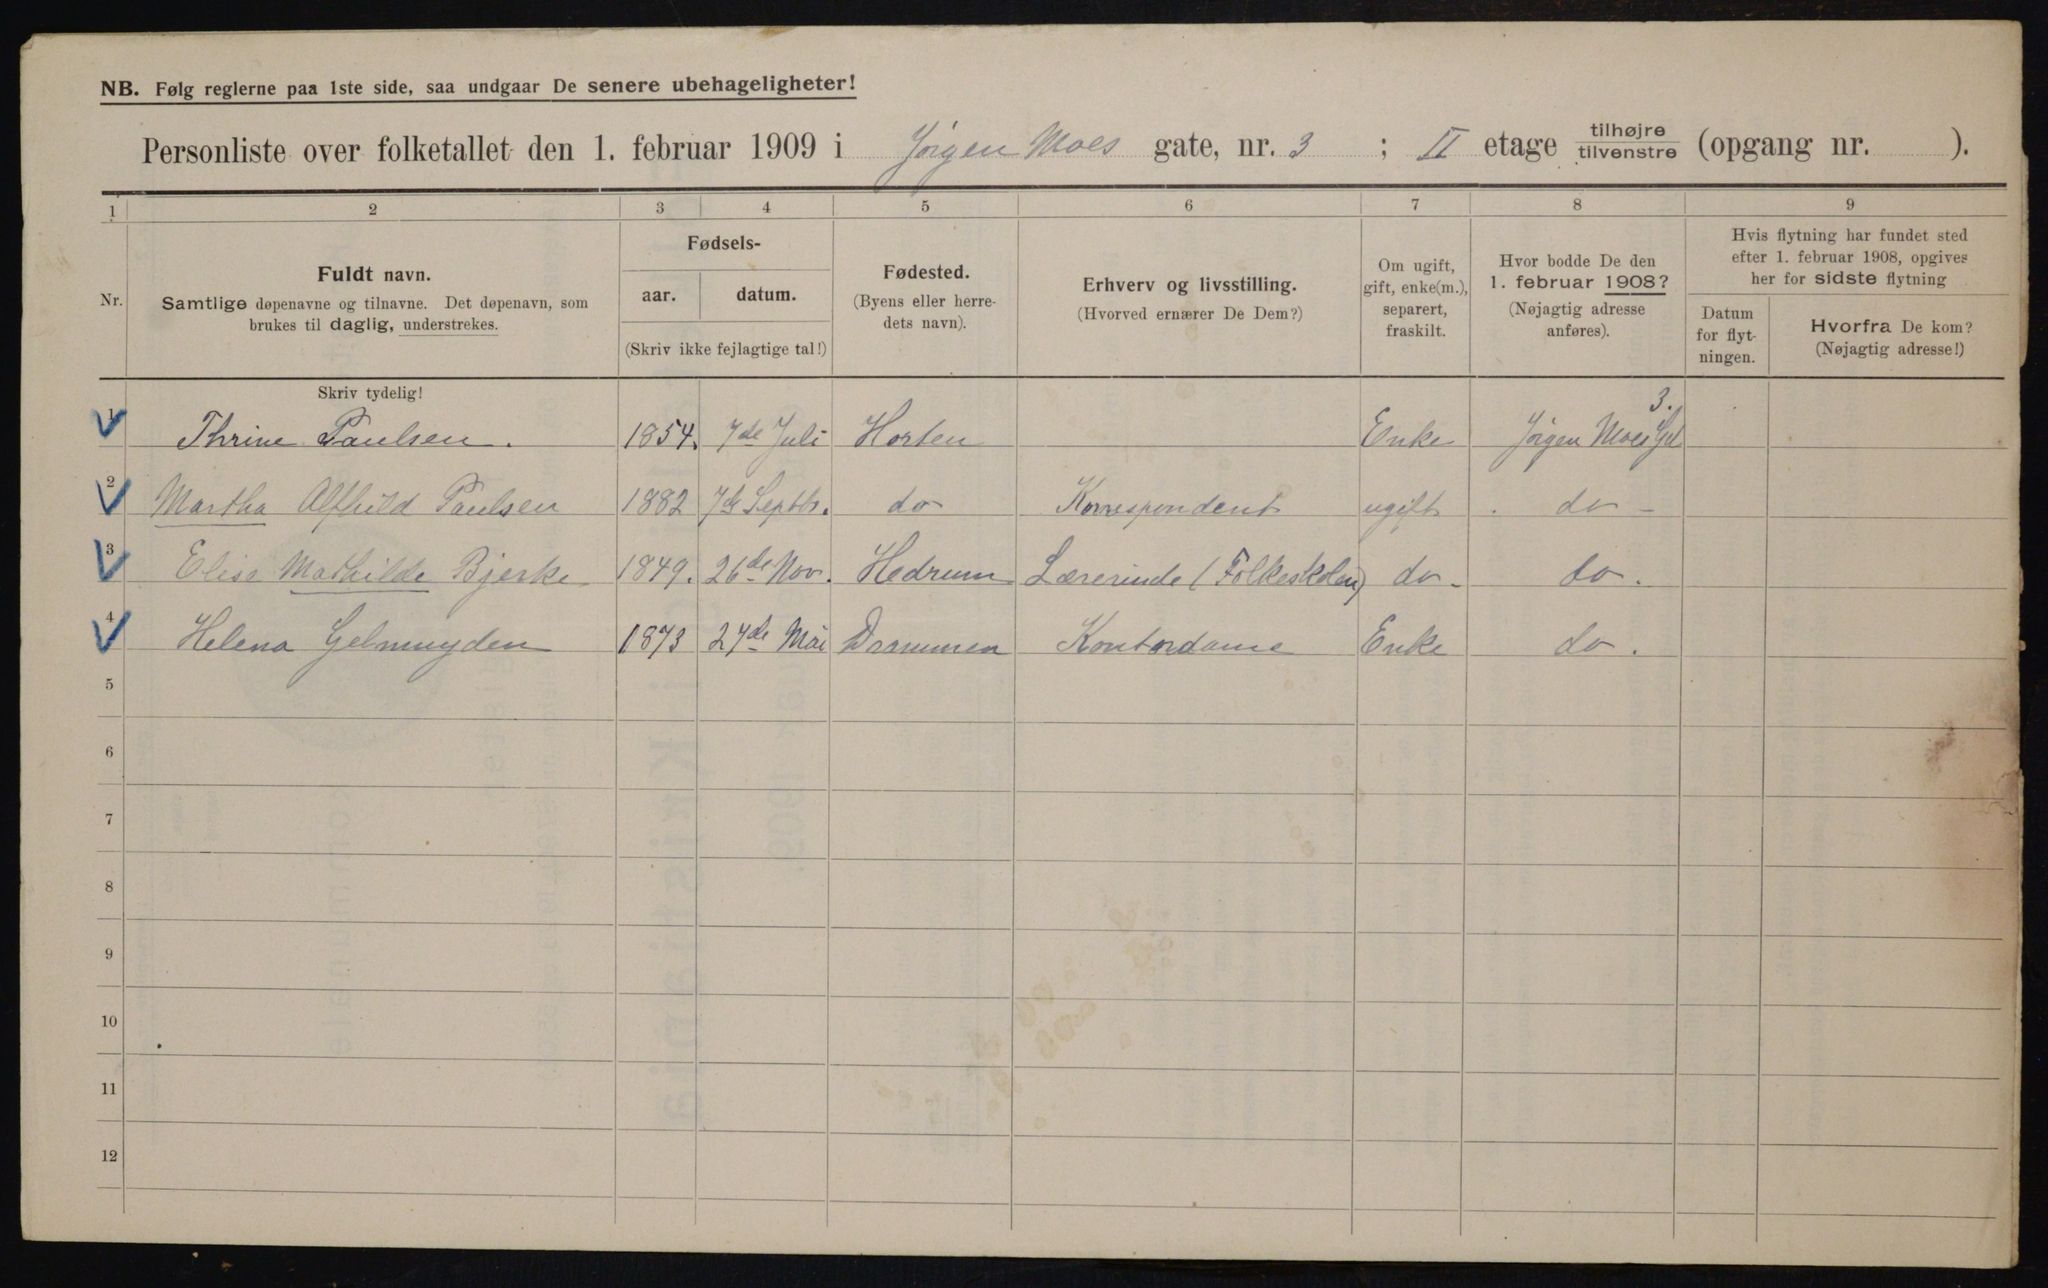 NB. Følg reglerne paa 1ste side, saa undgaar De senere ubehageligheter!
Personliste over folketallet den 1. februar 1909 i Jörgen Moes gate, nr. 3 ; II etage tilhøjre tilvenstre (opgang nr. ).
1 2 3 4 5 6 7 8 9
Nr.
Fuldt navn.
Samtlige døpenavne og tilnavne. Det døpenavn, som
brukes til daglig, understrekes.
Fødsels-
aar.
datum.
(Skriv ikke fejlagtige tal!)
Fødested.
(Byens eller herre-
dets navn).
Erhverv og livsstilling.
(Hvorved ernærer De Dem?)
Om ugift,
gift, enke(m.),
separert,
fraskilt.
Hvor bodde De den
1. februar 1908?
(Nøjagtig adresse
anføres).
Hvis flytning har fundet sted
efter 1. februar 1908, opgives
her for sidste flytning
Datum
for flyt-
ningen.
Hvorfra De kom?
(Nøjagtig adresse!)
Skriv tydelig!
3.
1 Thrine Paulsen. 1854. 7de Juli Horten Enke Jörgen Moes Gd
2 Martha Alfhild Paulsen 1882 7de Septbr. do Korrespondent ugift do -
3 Elise Mathilde Bjerke 1849. 26de Nov. Hedrum Lærerinde (Folkeskolen) do - do.
4 Helena Gelmuyden 1873 27de Mai Drammen Kontordame Enke do.
5
6
7
8
9
10
11
12